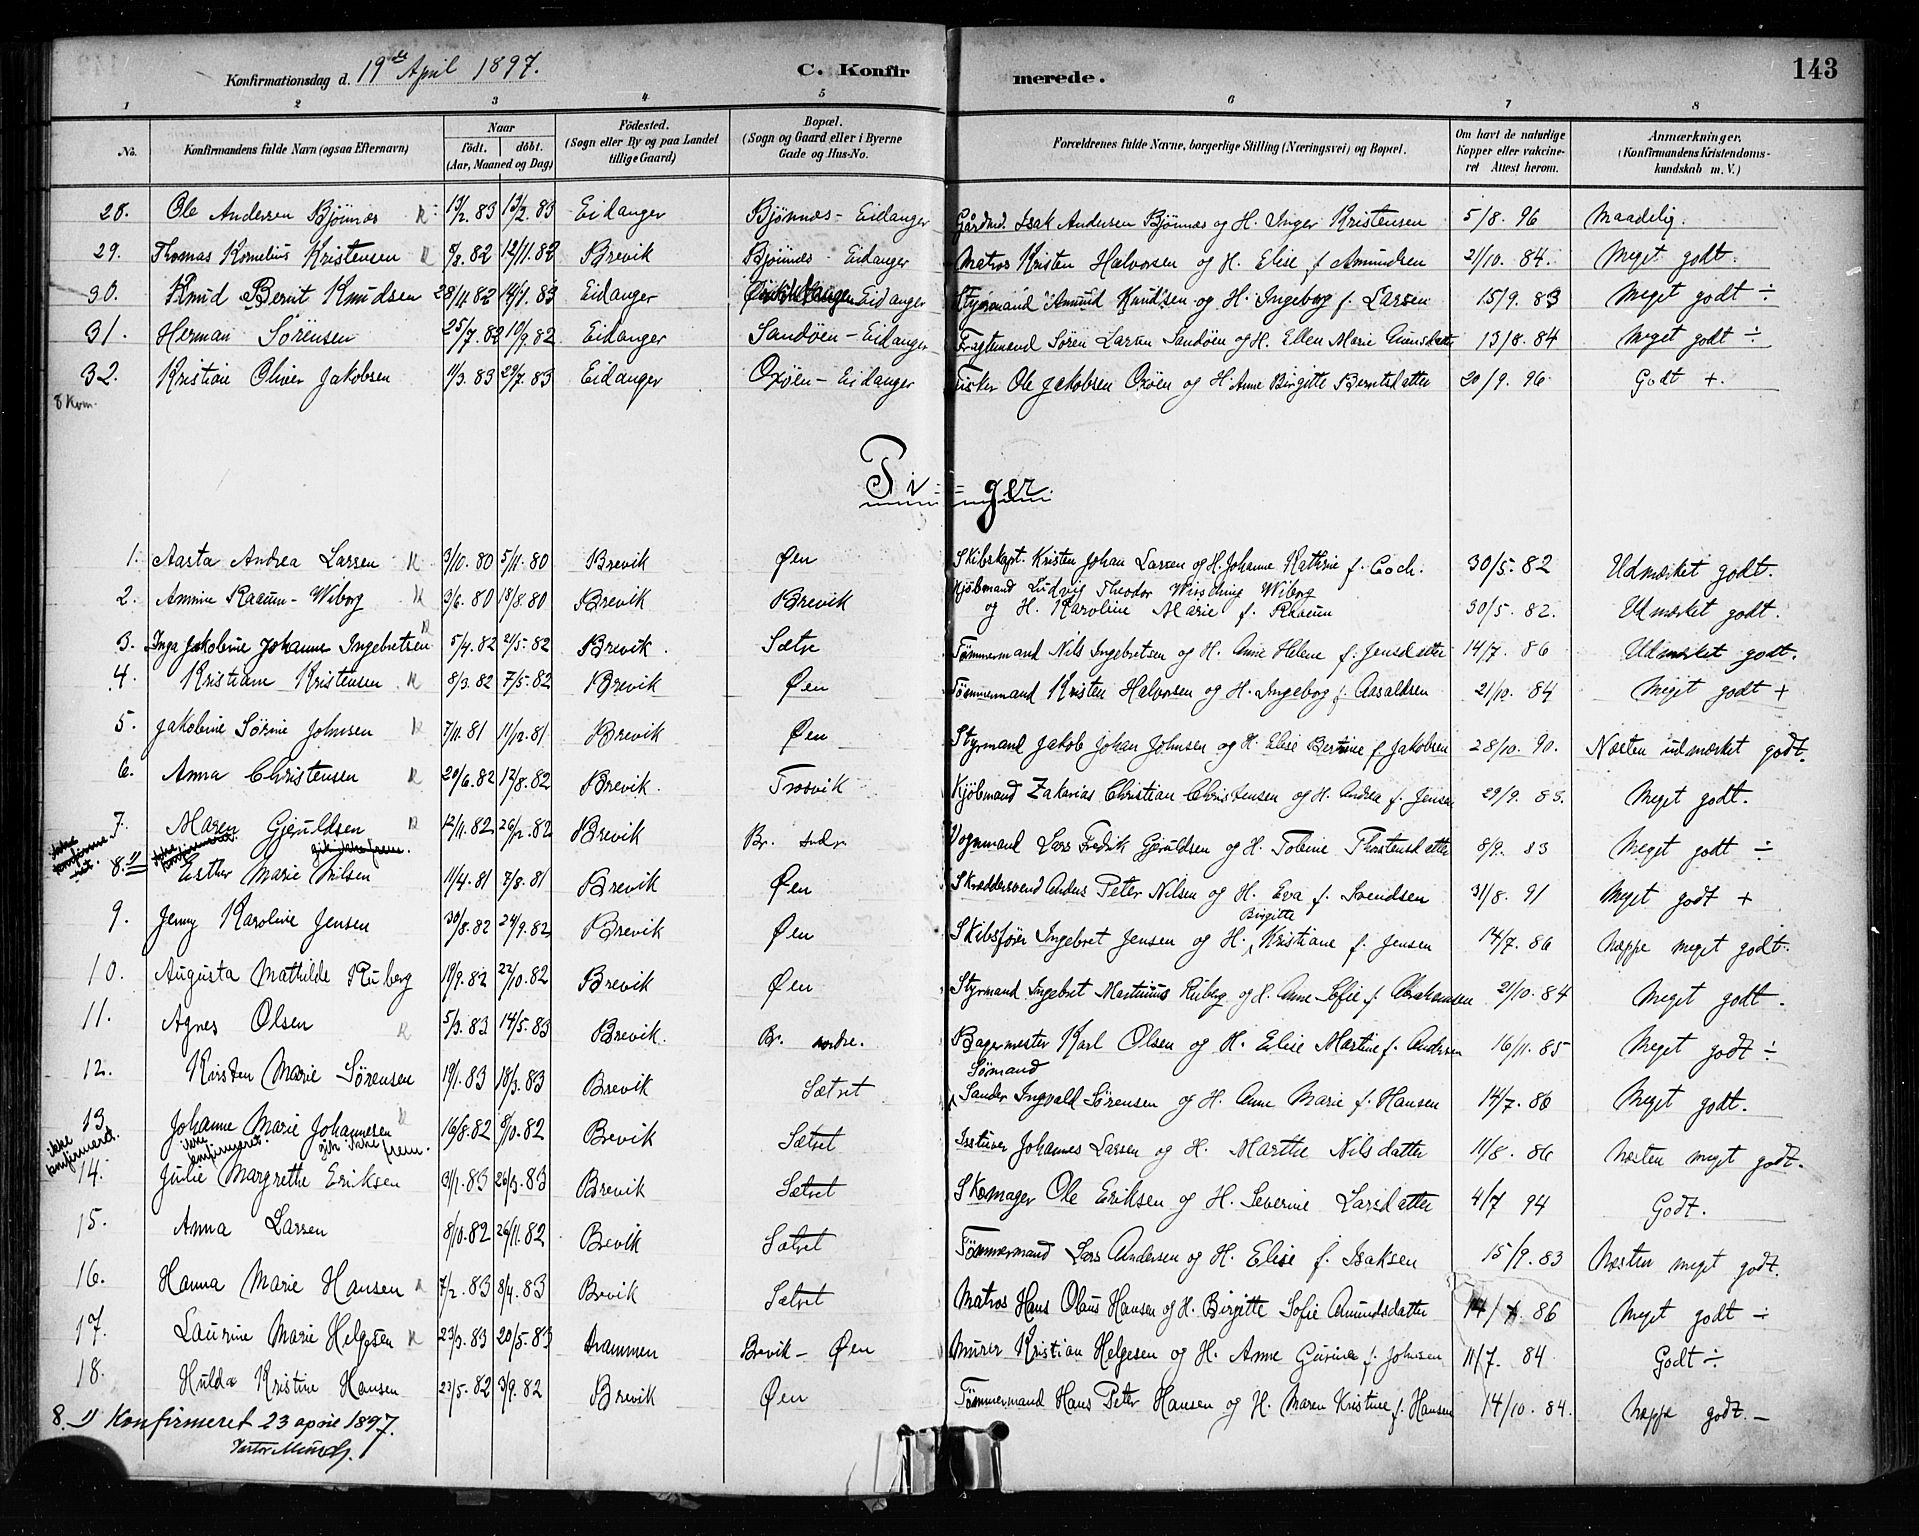 Konfirmationsdag d. 19de April 1897. C. Konfir merede. 143
1 2 3 4 5 6 7 8
No. Konfirmandens fulde Navn (ogsaa Efternavn) Naar født. døbt. (Aar, Maaned og Dag) Fødested. (Sogn eller By og paa Landet tillige Gaard) Bopæl. (Sogn og Gaard eller i Byerne Gade og Hus-No. Forældrenes fulde Navne, borgerlige Stilling (Næringsvei) og Bopæl. Om havt de naturlige Kopper eller vakcineret Attest herom. Anmærkninger. (Konfirmandens Kristendomskundskab m. V.)
28. Ole Andersen Bjønnes K Eidanger Bjønnes - Eidanger Gårdmd. Isak Andersen Bjønnes og H. Inger Kristensen 5/8. 96 Maadelig.
29. Thomas Kornelius Kristensen K 5/8. 82 12/11. 82 Brevik Bjønnes - Eidanger Matros Kristen Halvorsen og H. Elise f. Amundsen 21/10. 84. Meget godt.
30. Knud Bernt Knudsen 28/11. 82 14/1. 83 Eidanger Eidanger Styrmand Amund Knudsen og H. Ingeborg f. Larsen 15/9. 83 Meget godt ÷
31. Herman Sörensen 25/7. 82 10/9. 82 Eidanger Sandöen - Eidanger Fragtemand Sören Larsen Sandöen og H. Ellen Marie 13/8. 84 Meget godt ÷
32. Kristian Oliver Jakobsen 11/3. 83 29/7. 83 Eidanger Oxöen - Eidanger Fisker Ole Jakobsen Oxöen og H Anne Birgitte Berntsdatter 20/9. 96 Godt +.
8 Kom.
Pi = ger.
1. Aasta Andrea Larsen K 3/10. 80 5/11. 80 Brevik Øen Skibskapt. Kristen Johan Larsen og H. Johanne Kathrine f. Coch. 30/5. 82 Udmærket godt.
2. Annine Raaum-Wiborg K 3/6. 80 18/8. 80 Brevik Brevik Kjöbmand Ludvig Theodor Wiborg
og H. Karoline Marie f. Raaum 30/5. 82. Udmærket godt.
3. Inga Jakobine Johanne Ingebretsen K 5/4. 82 21/5. 82 Brevik. Sætre Tömmermand Nils Ingebretsen og H. Anne Helene f. Jensdatter 14/7. 86 Udmærket godt.
4. Kristiane Kristensen K 8/3. 82 7/5. 82 Brevik Øen Tömmermand Kristen Halvorsen og H. Ingeborg f. Aasaldsen 21/10. 84 Meget godt +
5. Jakobine Sörine Johnsen K 7/11. 81 11/12. 81 Brevik Øen Styrmand Jakob Johan Johnsen og H. Elise Bertine f. Jakobsen 28/10. 90. Næsten udmærket godt.
6. Anna Christensen K 20/6. 82 12/8. 82 Brevik. Trosvik Kjöbmand Zakarias Christian Christensen og H. Andrea f. Jensen 29/9. 83. Meget godt.
7. Maren Gjeruldsen K 12/11. 82 Brevik Br. Vognmand Lars Fredrik Gjeruldsen og H. Tobine Thorstensdatter 8/9. 83 Meget godt ÷
ikke konfirmeret. ikke konfirmeret. gik ikke frem.
8. 1) Esther Marie Nilsen 11/4. 81 7/8. 81 Brevik Øen Skræddersvend Anders Peter Nilsen og H. Eva f. Svendsen 31/8. 91 Meget godt +
9. Jenny Karoline Jensen 30/8. 82 24/9. 82 Brevik Øen Skibsfører Ingebret Jensen og H. Birgitte Kristiane f. Jensen 14/7. 86 næppe meget godt.
10. Augusta Mathilde Ruberg 19/9. 82 22/10. 82 Brevik Øen Styrmand Ingebret Martinius Ruberg og H. Anne Sofie f. Abrahamsen 21/10. 84 Meget godt.
11. Agnes Olsen K 5/3. 83 14/5. 83 Brevik. Br. Bagermester Karl Olsen og H. Elise Martine f. Andersen 16/11. 85 Meget godt ÷
12. Kristen Marie Sörensen 19/1. 83 18/3. 83 Brevik Sætret Sömand
Sander Ingvald Sörensen og H. Anne Marie f. Hansen 14/7. 86 Meget godt.
13 Johanne Marie Johannesen K 16/8. 82 8/10. 82 Brevik Sætret Johannes Larsen og H. Marthe Nilsdatter 11/8. 86 næsten meget godt.
ikke konfirmerd. ikke konfirmeret. gik ikke frem.
14. Julie Margrethe Eriksen 3/1. 83 26/3. 83 Brevik Sætret Skomager Ole Eriksen og H. Severine Larsdatter 4/7 94 Godt.
15. Anna Larsen 8/10. 82 26/11. 82 Brevik Sætret Tömmermand Lars Andersen og H. Elise f. Isaksen 15/9. 83 Næsten meget godt.
16. Hanna Marie Hansen K 7/2. 83 8/4. 83 Brevik Sætret Matros Hans Olaus Hansen og H. Birgitte Sofie Amundsdatter 14/7. 86 Meget godt ÷
17. Laurine Marie Helgesen K 23/3. 83 20/5. 83 Drammen Brevik - Øen Murer Kristian Helgesen og H. Anne Gurine f. Johnsen 11/7. 84 Godt ÷
18. Hulda Kristine Hansen 23/5. 82 3/9. 82 Brevik Øen Tömmermand Hans Peter Hansen og H. Maren Kristine f. Hansen 14/10. 84. næppe godt. -
8. 1) Konfirmeret 23 april 1897.